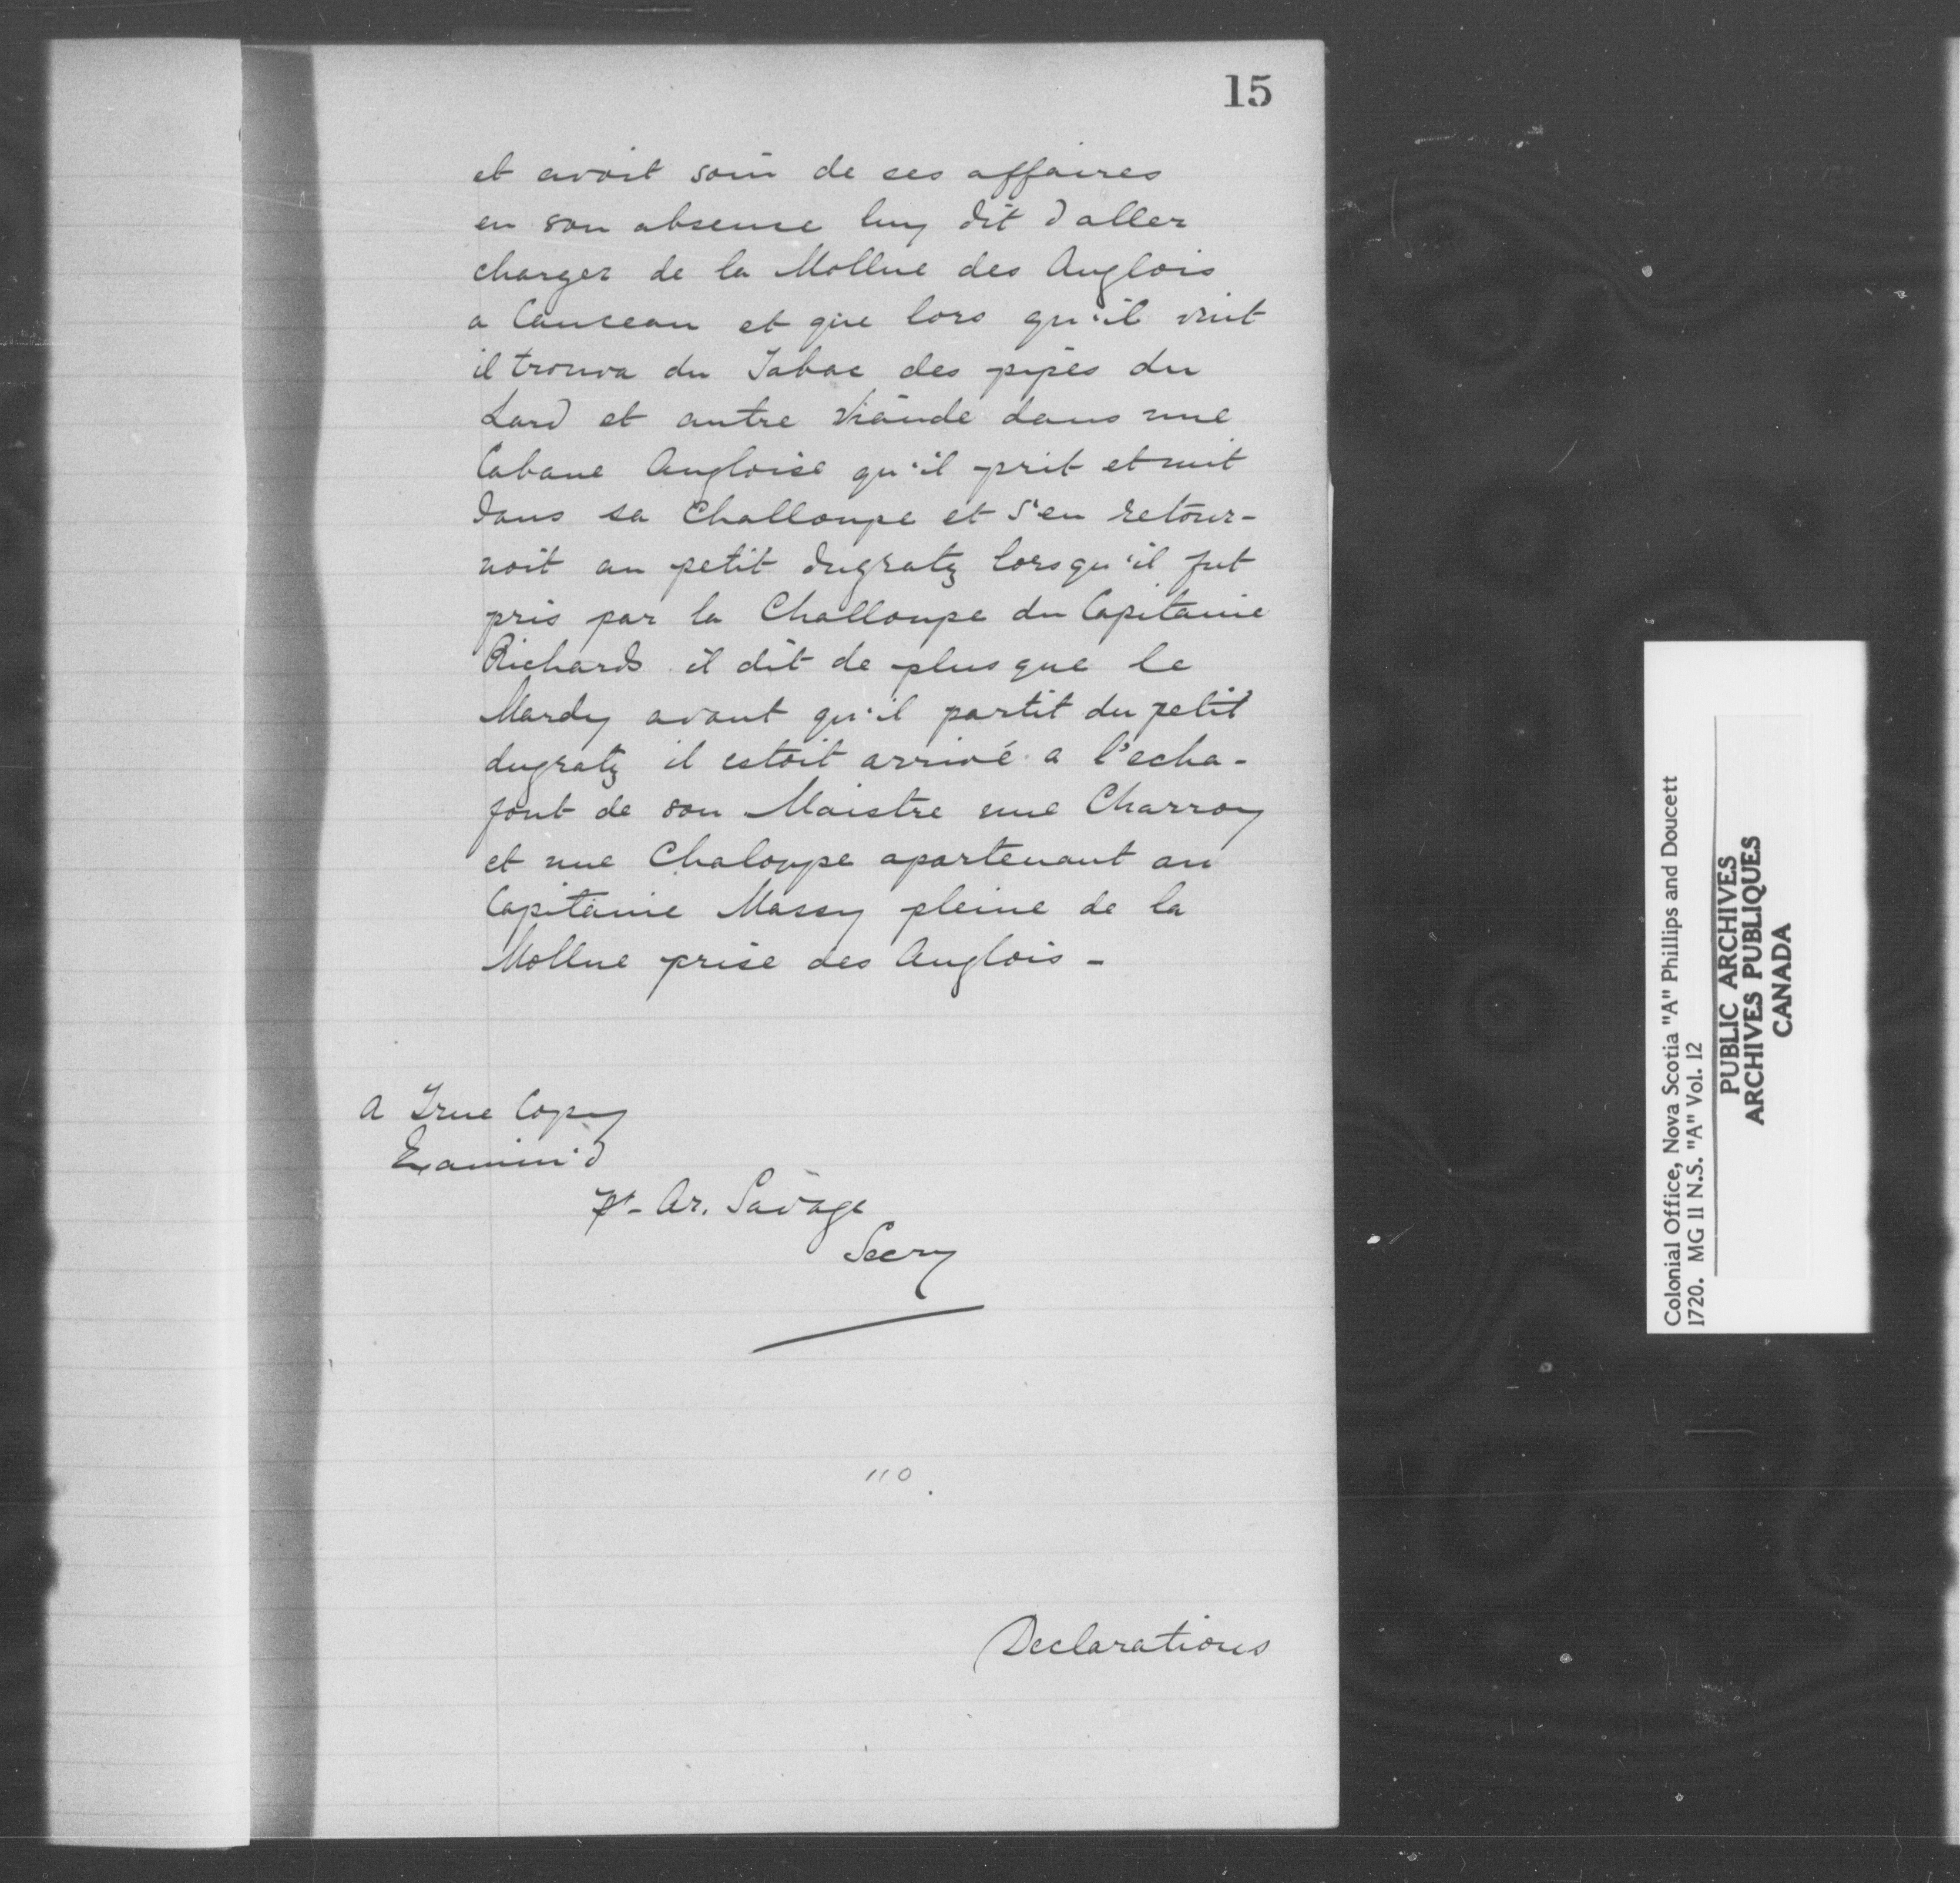 15
et avoit soin de ces affaires
en son absence luy dit d aller
charger de la Mollue des Anglois
a Canceau et que lors qu'il vint
il trouva du Tabac des pipes du
Lard et autre viande dans une
Cabane Angloise qu'il prit et mit
dans sa Challoupe et s'en retour-
noit au petit dugratz lorsqu'il fut
pris par la Challoupe du Capitaine
Richards il dit de plus que le
Mardy avant qu'il partit du petit
dugratz il estoit arrivé a l'echa-
fout de son Maistre une Charroy
et une Chaloppe apartenant au
Capitaine Massy pleine de la
Mollue prise des Anglois -
A True Copy
Examin'd
pr- Ar. Savage
Secry
110.
Declarations
Colonial Office, Nova Scotia "A" Phillips and Doucett
1720. MG 11 N.S. "A" Vol. 12
PUBLIC ARCHIVES
ARCHIVES PUBLIQUES
CANADA